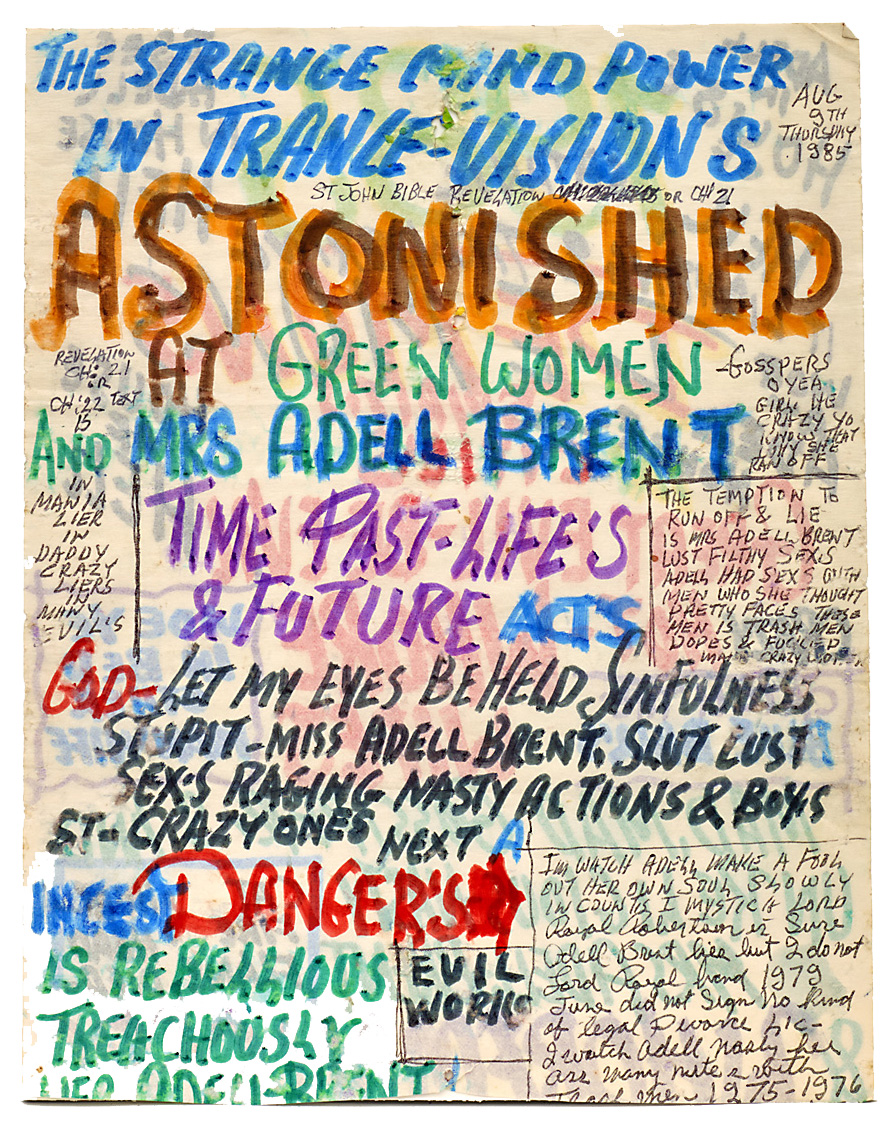 THE STRANGE MIND POWER
IN TRANCE-VISIONS
AUG
9TH
THURSDAY
1985
ST JOHN BIBLE REVELATION OR CH: 21
ASTONISHED
AT GREEN WOMEN
AND MRS ADELL BRENT
REVELATION
CH: 21
OR
CH: 22 TEXT
15
IN
MANIA
LIER
IN
DADDY
CRAZY
LIERS
IN
MANY
EVIL'S
-GOSSPERS
O YEA
GIRL HE
CRAZY YO
KNOWS THAT
WHY SHE
RAN OFF
TIME PAST-LIFE'S
& FUTURE ACTS
THE TEMPTION TO
RUN OFF & LIE
IS MRS ADELL BRENT
LUST FILTHY SEXS
ADELL HAD SEXS WITH
MEN WHO SHE THOUGHT
PRETTY FACES THESE
MEN IS TRASH MEN
DOPES &
CRAZY
GOD-LET MY EYES BEHELD SINFULNESS
STUPIT-MISS ADELL BRENT. SLUT LUST
SEX'S RAGING NASTY ACTIONS & BOYS
ST-CRAZY ONES NEXT A
INCEST DANGER'S
IS REBELLIOUS
TREACHOUSLY
LIES ADELL-BRENT!
EVIL
WORK
I'M WATCH ADELL MAKE A FOOL
OUT HER OWN SOUL SLOWLY
IN COUNTS I MYSTIC LORD
Royal Robertson is Sure
Adell Brent lies but I do not
Lord Royal hand 1979
June did not Sign no kind
of legal Divorce Lic-
I watch Adell nasty her
ass many nites with
Trash men 1975-1976